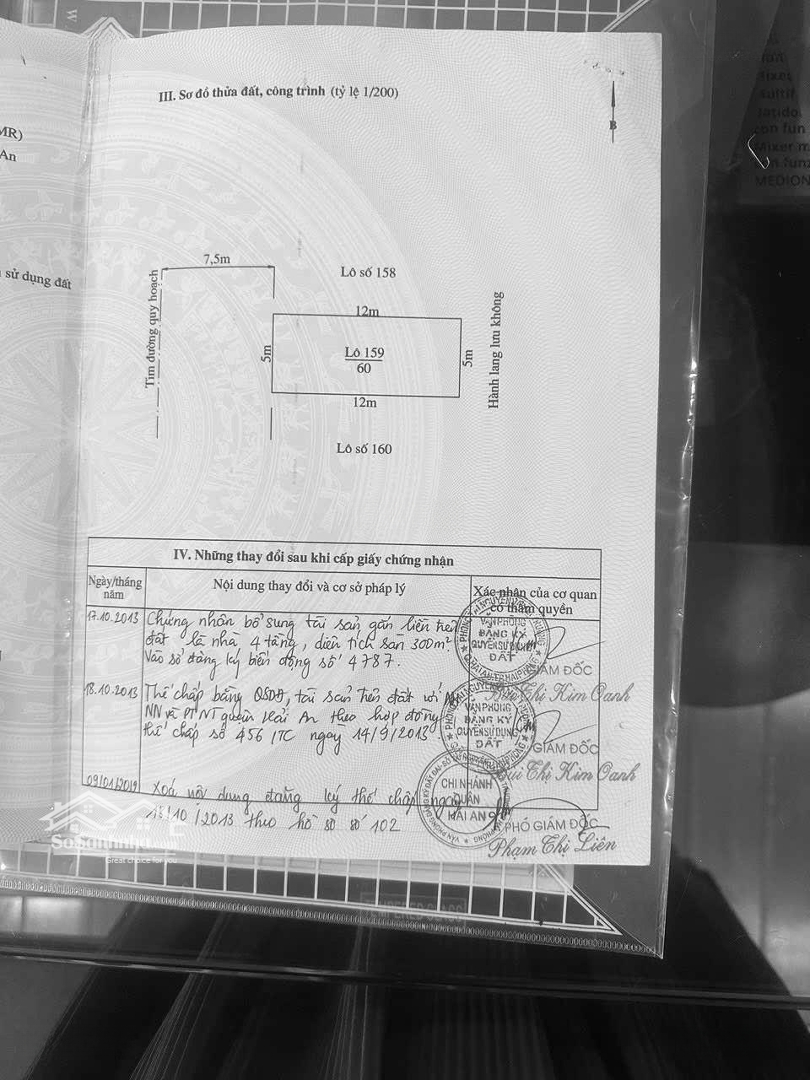 MR)
An
sử dụng đất
III. Sơ đồ thửa đất, công trình (tỷ lệ 1/200)
B
7,5m
Lô số 158
Tim đường quy hoạch
12m
5m
Lô 159
60
5m
Hành lang lưu không
12m
Lô số 160
IV. Những thay đổi sau khi cấp giấy chứng nhận
Ngày/tháng năm
Nội dung thay đổi và cơ sở pháp lý
Xác nhận của cơ quan
có thẩm quyền
17.10.2013
Chứng nhận bổ sung tài sản gắn liền trên
đất là nhà 4 tầng, diện tích sàn 300m²
Vào sổ đăng ký biến động số 4787.
VĂN PHÒNG
ĐĂNG KÝ
QUYỀN SỬ DỤNG
ĐẤT
GIÁM ĐỐC
Bùi Thị Kim Oanh
18.10.2013
Thế chấp bằng QSDĐ, tài sản trên đất với
NN và PTNT quận Hải An theo hợp đồng
thế chấp số 456 /TC ngày 14/9/2013
VĂN PHÒNG
ĐĂNG KÝ
QUYỀN SỬ DỤNG
ĐẤT
GIÁM ĐỐC
Bùi Thị Kim Oanh
09/01/2019
Xoá nội dung đăng ký thế chấp ngày
18/10/2013 theo hồ sơ số 102
CHI NHÁNH
QUẬN
HẢI AN
PHÓ GIÁM ĐỐC
Phạm Thị Liên
Great choice for you
TEMPERED GLASS
con fun
Mixer m
MEDION